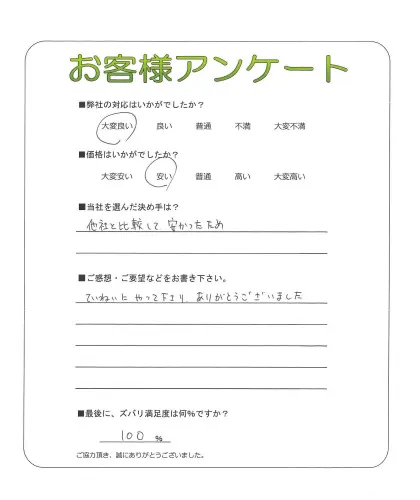 お客様アンケート
■弊社の対応はいかがでしたか？
大変良い 良い 普通 不満 大変不満
■価格はいかがでしたか？
大変安い 安い 普通 高い 大変高い
■当社を選んだ決め手は？
他社と比較して安かったため
■ご感想・ご要望などをお書き下さい。
ていねいにやって下さり、ありがとうございました
■最後に、ズバリ満足度は何%ですか？
100 %
ご協力頂き、誠にありがとうございました。